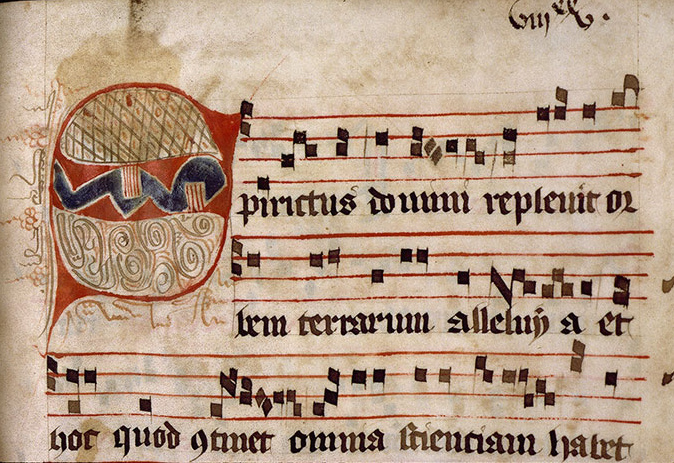 Spirictus domini repleuit or
bem terrarum alleluy a et
hoc quod 9tinet omnia scienciam habet